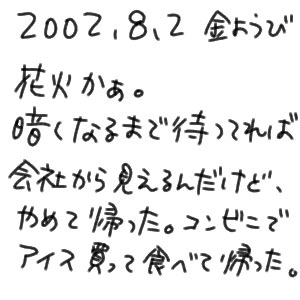 2002,8,2 金ようび
花火かぁ。
暗くなるまで待ってれば
会社から見えるんだけど、
やめて帰った。コンビニで
アイス買って食べて帰った。